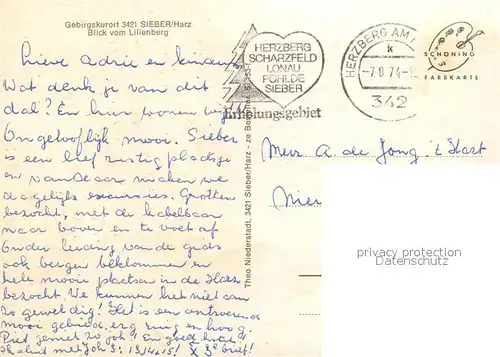 Gebirgskurort 3421 SIEBER/Harz
Blick vom Lilienberg
Lieve Adrie en
Wat denk je van dit
dal? En hier wonen wij
Ongelooflijk mooi. Sieber
is een lief rustig plaatsje
en vandaar maken we
dagelijks excursies. Grotten
bezocht, met de kabelbaan
naar boven en te voet af
Onder leiding van de gids
ook bergen beklommen en
hele mooie plaatsen in de Harz
bezocht. We kunnen het niet aan
zo geweldig! Het is een
mooi gebied. erg ruig en hoog.
Piet geniet zo
3e brief!
Theo Niederstadt, 3421 Sieber/Harz
HERZBERG
SCHARZFELD
LONAU
PÖHLDE
SIEBER
Erholungsgebiet
HERZBERG AM
k
-7.8.74-1
342
SCHÖNING
FARBKARTE
Mevr A de Jong 't Hart
privacy protection
Datenschutz